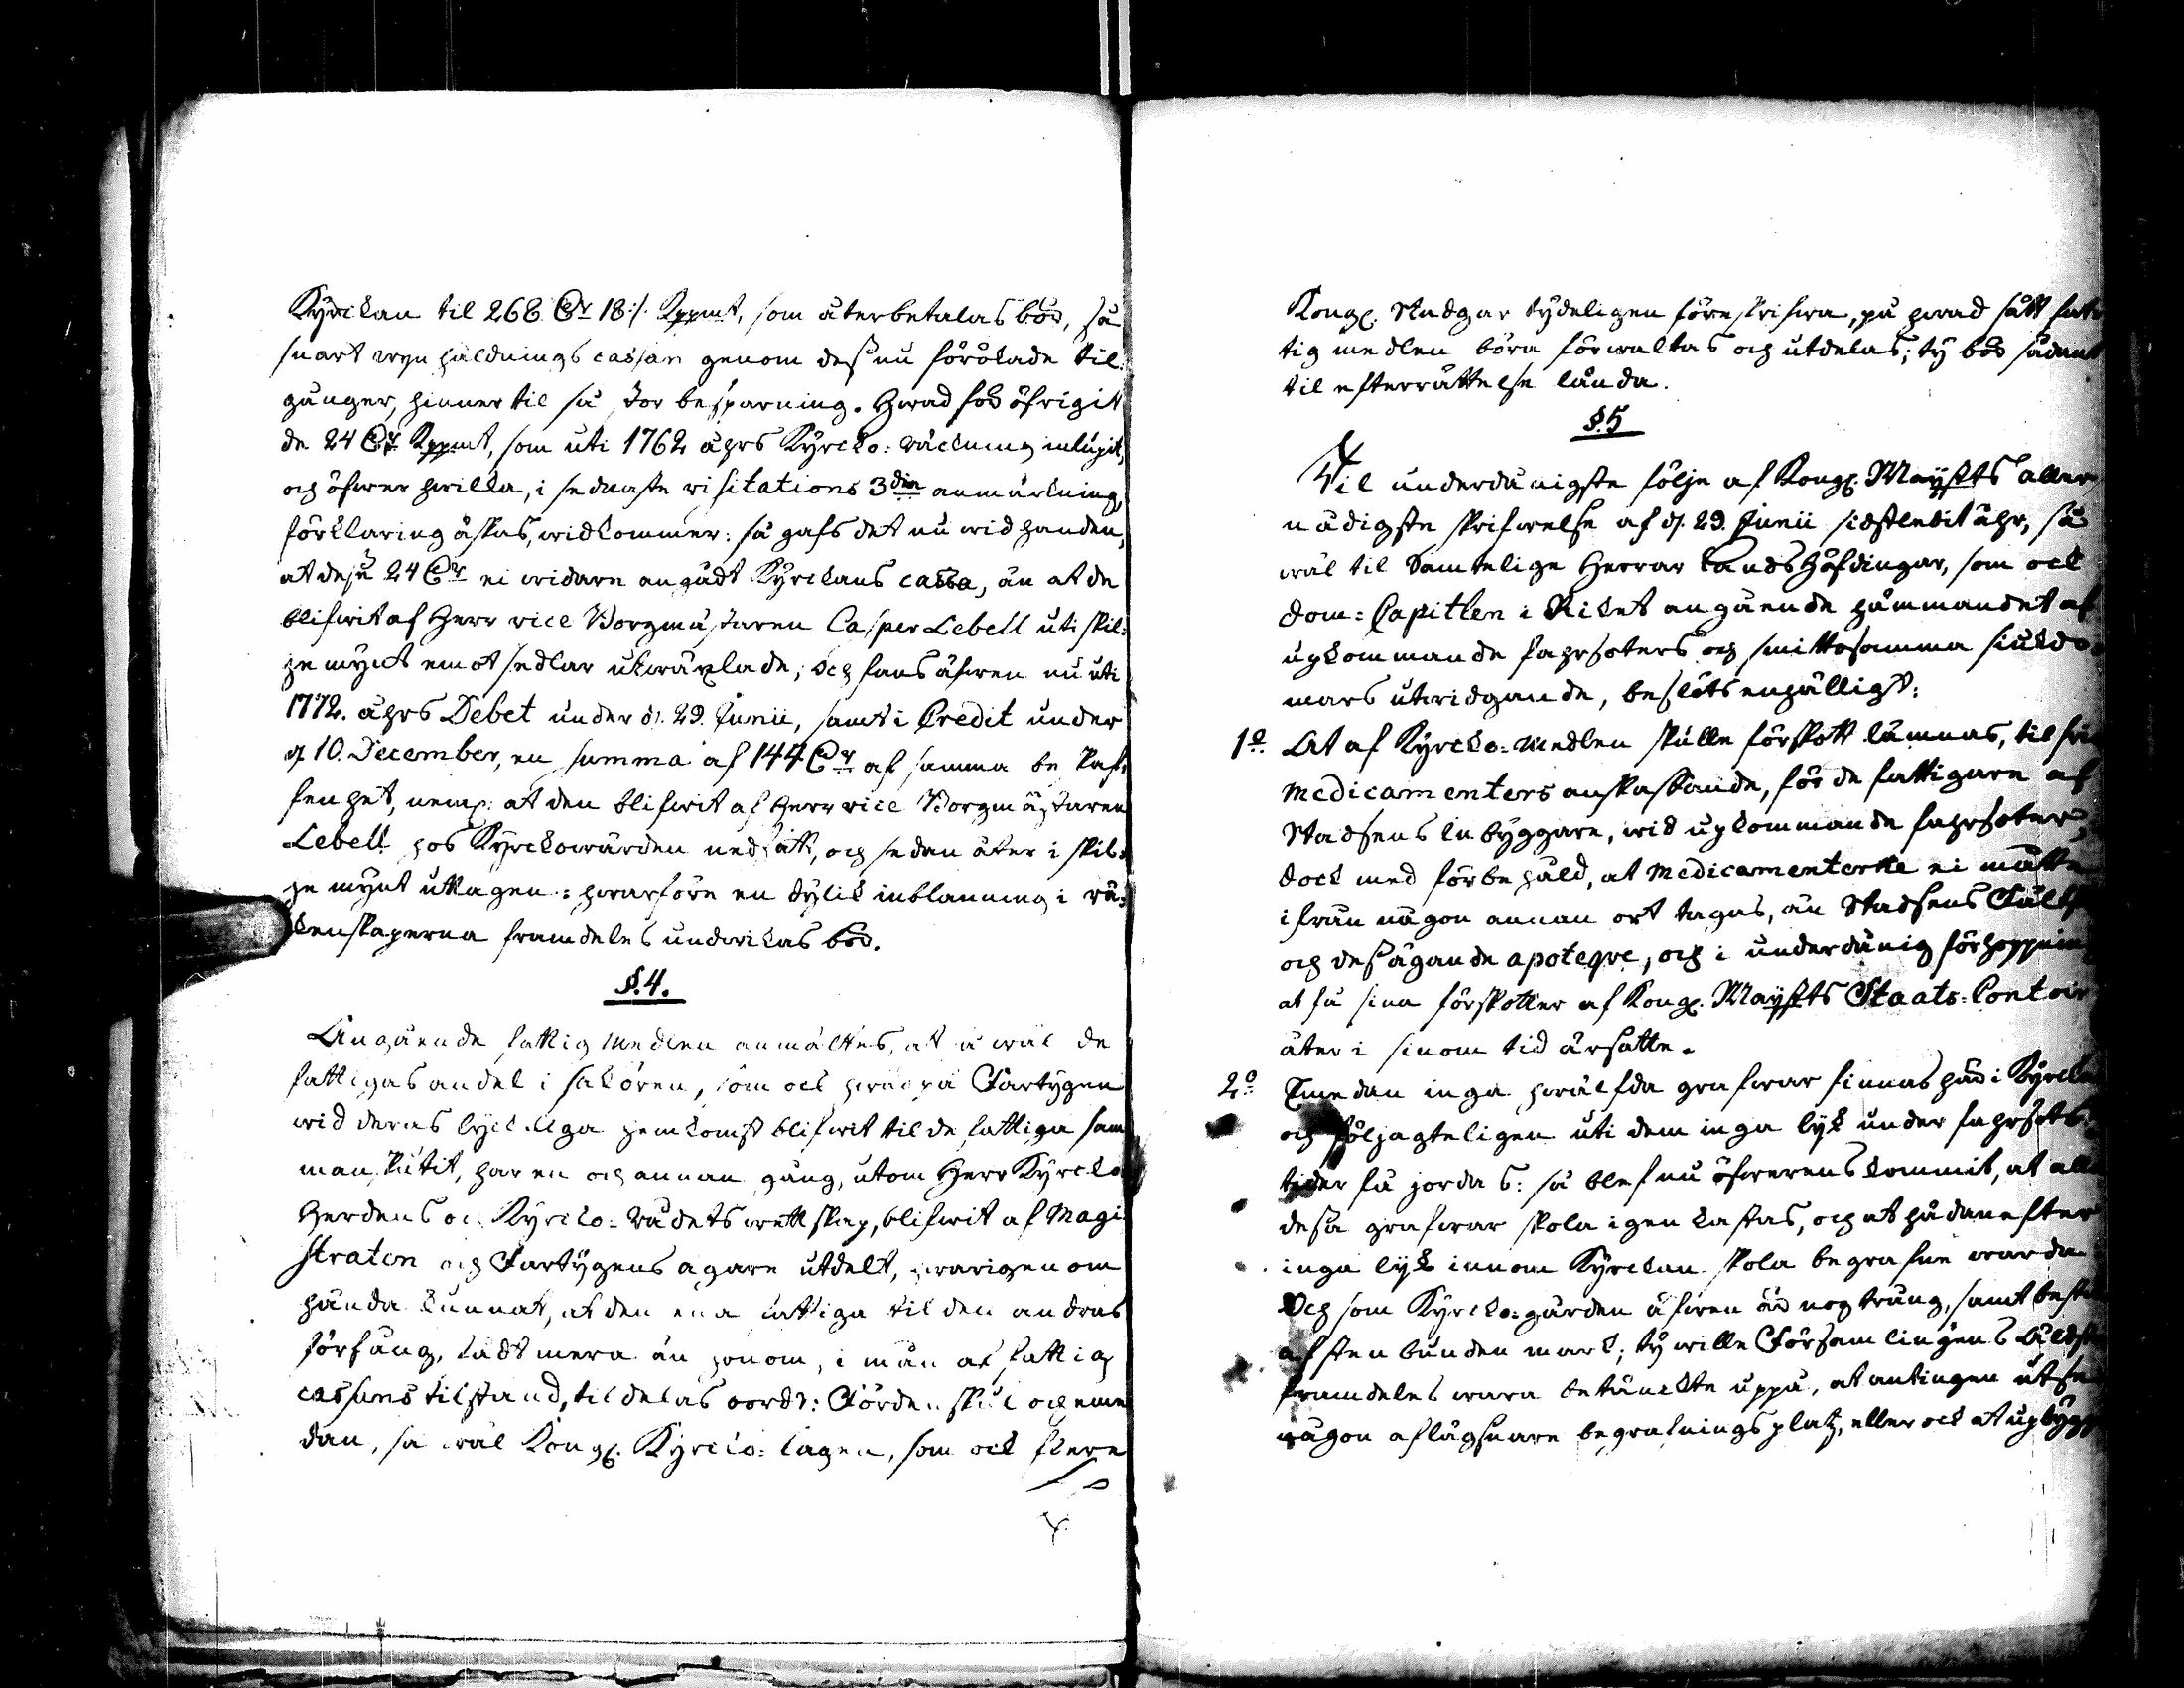 Kyrckan til 268 Dr 18 :/. Kppmt, som återbetalas bör, så
snart wyn håldnings cassan genom dess nu förökade til:
gånger, hinner til så stor besparning. Hwad för öfrigit
de 24 Dr Kppmt, som uti 1762 åhrs Kyrcko: räckning inlupit,
och öfwer hwilka, i sednaste visitations 3die anmärkning,
förklaring äskas, widkommer: så gafs det nu wid handen,
at desse 24 Dr ei widare angådt Kyrckans cassa, än at de
blifwit af Herr vice Borgmästaren Casper Lebell uti skil:
je mynt emot sedlar utwäxlade; och fans äfwen nu uti
1772. åhrs Debet under d. 29. Junii, samt i Credit under
d. 10. December, en summa af 144 Dr af samma be skaf:
fenhet, neml: at den blifwit af Herr vice Borgmästaren
Lebell hos Kyrckowärden nedsatt, och sedan åter i skil:
je mynt uttagen: hwarföre en dylik inblanning i rä:
kenskaperna framdeles undwikas bör.
§. 4.
Angående fattig medlen anmältes, at så wäl de
fattigas andel i sakören, som ock hwad på Fartygen
wid deras lyckliga hemkomst blifwit til de fattiga sam
man skutit, har en och annan gång, utom Herr Kyrcko
Herdens och Kyrcko: Rådets wettskap, blifwit af Magi
straten och Fartygens ägare utdelt, hwarigenom
hända kunnat, at den ena fattiga til den andras
förfång, fådt mera än honom, i mån af fattig
cassans tilstånd, tildelas bordt: Fördenskul och eme
dan, så wäl Kongl. Kyrcko: lagen, som ock flere
Kongl. Stadgar tydeligen föreskrifwa, på hwad sätt fat
tig medlen böra förwaltas och utdelas; ty bör sådant
til efterrättelse lända.
§. 5
Til underdånigste följe af Kongl. Maysts aller
nådigste skrifwelse af d. 29. Junii sidstledit åhr, så
wäl til Samtelige Herrar Landshöfdingar, som ock
Dom: Capitlen i Riket angående hämmandet af
upkommande fahrsoters och smittosamma siukdo:
mars utwidgande, beslöts enhälligt:
1o. At af Kyrcko: medlen skulle förskott lämnas, til fria
Medicamenters anskaffande, för de fattigare af
Stadsens Inbyggare, wid upkommande fahrsoter,
dock med förbehåld, at Medicamenterne ei måtte
ifrån någon annan ort tagas, än Stadsens Fält
och dess ägande apoteque, och i underdånig förhoppning
at få sina förskotter af Kongl. Maysts Staats: Contoir
åter i sinom tid ärsatte.
2o. Emedan inga hwälfda grafwar finnas här i Kyrckan
och följagteligen uti dem inga lyk under fahrsots
tider få jordas: så blef nu öfwerenskommit, at alla
dessa grafwar skola igenkastas, och at hädanefter
inga lyk innom Kyrckan skola begrafne warda
Och som Kyrcko: gården äfwen är nog trång, samt består
af stenbunden mark; ty wille Församlingens Äldste
framdeles wara betänckte uppå, at antingen utse
någon aflägsnare begrafnings platz, eller ock at upbygga